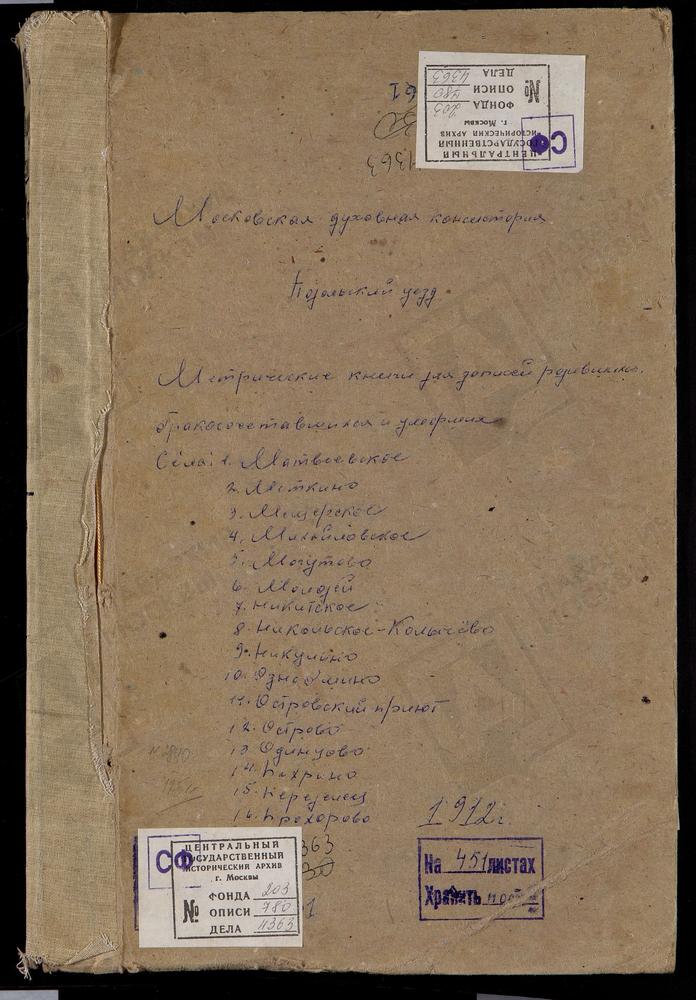 ЦЕНТРАЛЬНЫЙ
ГОСУДАРСТВЕННЫЙ
ИСТОРИЧЕСКИЙ АРХИВ
г. Москвы
№
ФОНДА 203
ОПИСИ 780
ДЕЛА 4363
СФ
Московская духовная консистория
Подольский уезд
Метрические книги для записей родившихся,
бракосочетавшихся и умерших
Села: 1. Матвеевское
2. Меткино
3. Мещерское
4. Михайловское
5. Могутово
6. Молодей
7. Никитское
8. Никольское-Колычёво
9. Никулино
10. Ознобишино
11. Островский приют
12. Остров
13. Одинцово
14. Пахрино
15. Передел
16. Прохорово
1912г.
На 451 листах
Хранить пост.
СФ
ЦЕНТРАЛЬНЫЙ
ГОСУДАРСТВЕННЫЙ
ИСТОРИЧЕСКИЙ АРХИВ
г. Москвы
№
ФОНДА 203
ОПИСИ 780
ДЕЛА 4363